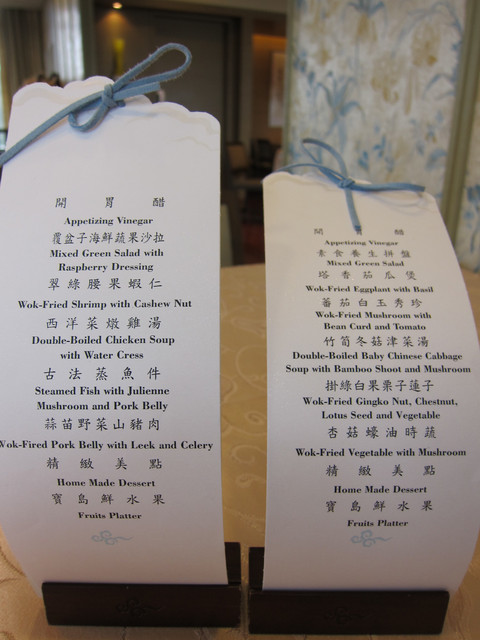 開胃醋
Appetizing Vinegar
覆盆子海鮮蔬果沙拉
Mixed Green Salad with
Raspberry Dressing
翠綠腰果蝦仁
Wok-Fried Shrimp with Cashew Nut
西洋菜燉雞湯
Double-Boiled Chicken Soup
with Water Cress
古法蒸魚件
Steamed Fish with Julienne
Mushroom and Pork Belly
蒜苗野菜山豬肉
Wok-Fired Pork Belly with Leek and Celery
精緻美點
Home Made Dessert
寶島鮮水果
Fruits Platter
開胃醋
Appetizing Vinegar
素食養生拼盤
Mixed Green Salad
塔香茄瓜煲
Wok-Fried Eggplant with Basil
蕃茄白玉秀珍
Wok-Fried Mushroom with
Bean Curd and Tomato
竹笥冬菇津菜湯
Double-Boiled Baby Chinese Cabbage
Soup with Bamboo Shoot and Mushroom
掛綠白果栗子蓮子
Wok-Fried Gingko Nut, Chestnut,
Lotus Seed and Vegetable
杏菇蠔油時蔬
Wok-Fried Vegetable with Mushroom
精緻美點
Home Made Dessert
寶島鮮水果
Fruits Platter